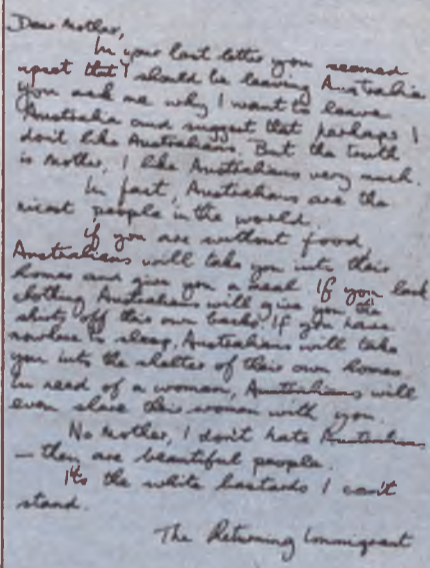 Dear Mother,
In your last letter you seemed
upset that I should be leaving Australia
you ask me why I want to leave
Australia and suggest that perhaps I
don't like Australians. But the truth
is Mother, I like Australians very much.
In fact, Australians are the
nicest people in the world.
if you are without food,
Australians will take you into their
homes and give you a meal If you lack
clothing Australians will give you the
shirts off their own backs. If you have
nowhere to sleep, Australians will take
you into the shelter of their own homes
in need of a woman, Australians will
even share their woman with you.
No Mother, I don't hate Australians
— they are beautiful people.
It's the white bastards I can't
stand.
The Returning Immigrant